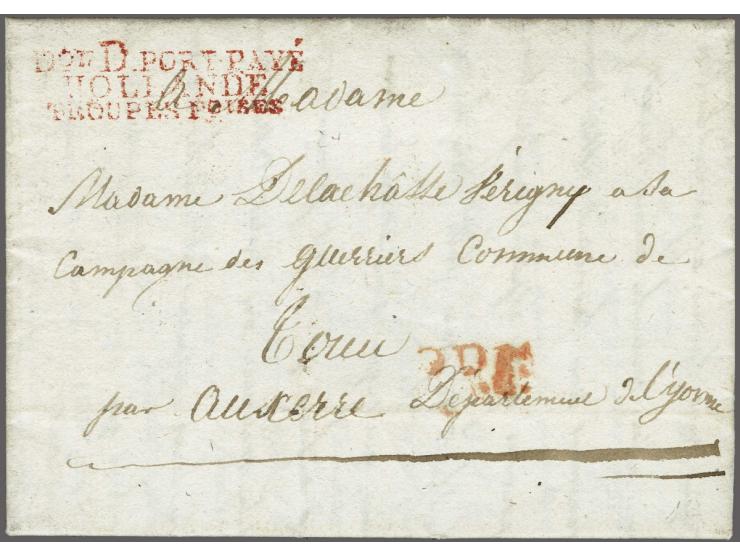 Don D. PORT PAYÉ
HOLLANDE
TROUPES FSES
A Madame
Madame Delachâsse Périgny a sa
Campagne des guerriers Commune de
par auxerre Département de l'yonne